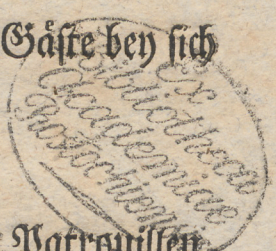 Gäſte bey ſich
Ex
Bibliotheca
Academiae
Rostochiensi
Patrouillen